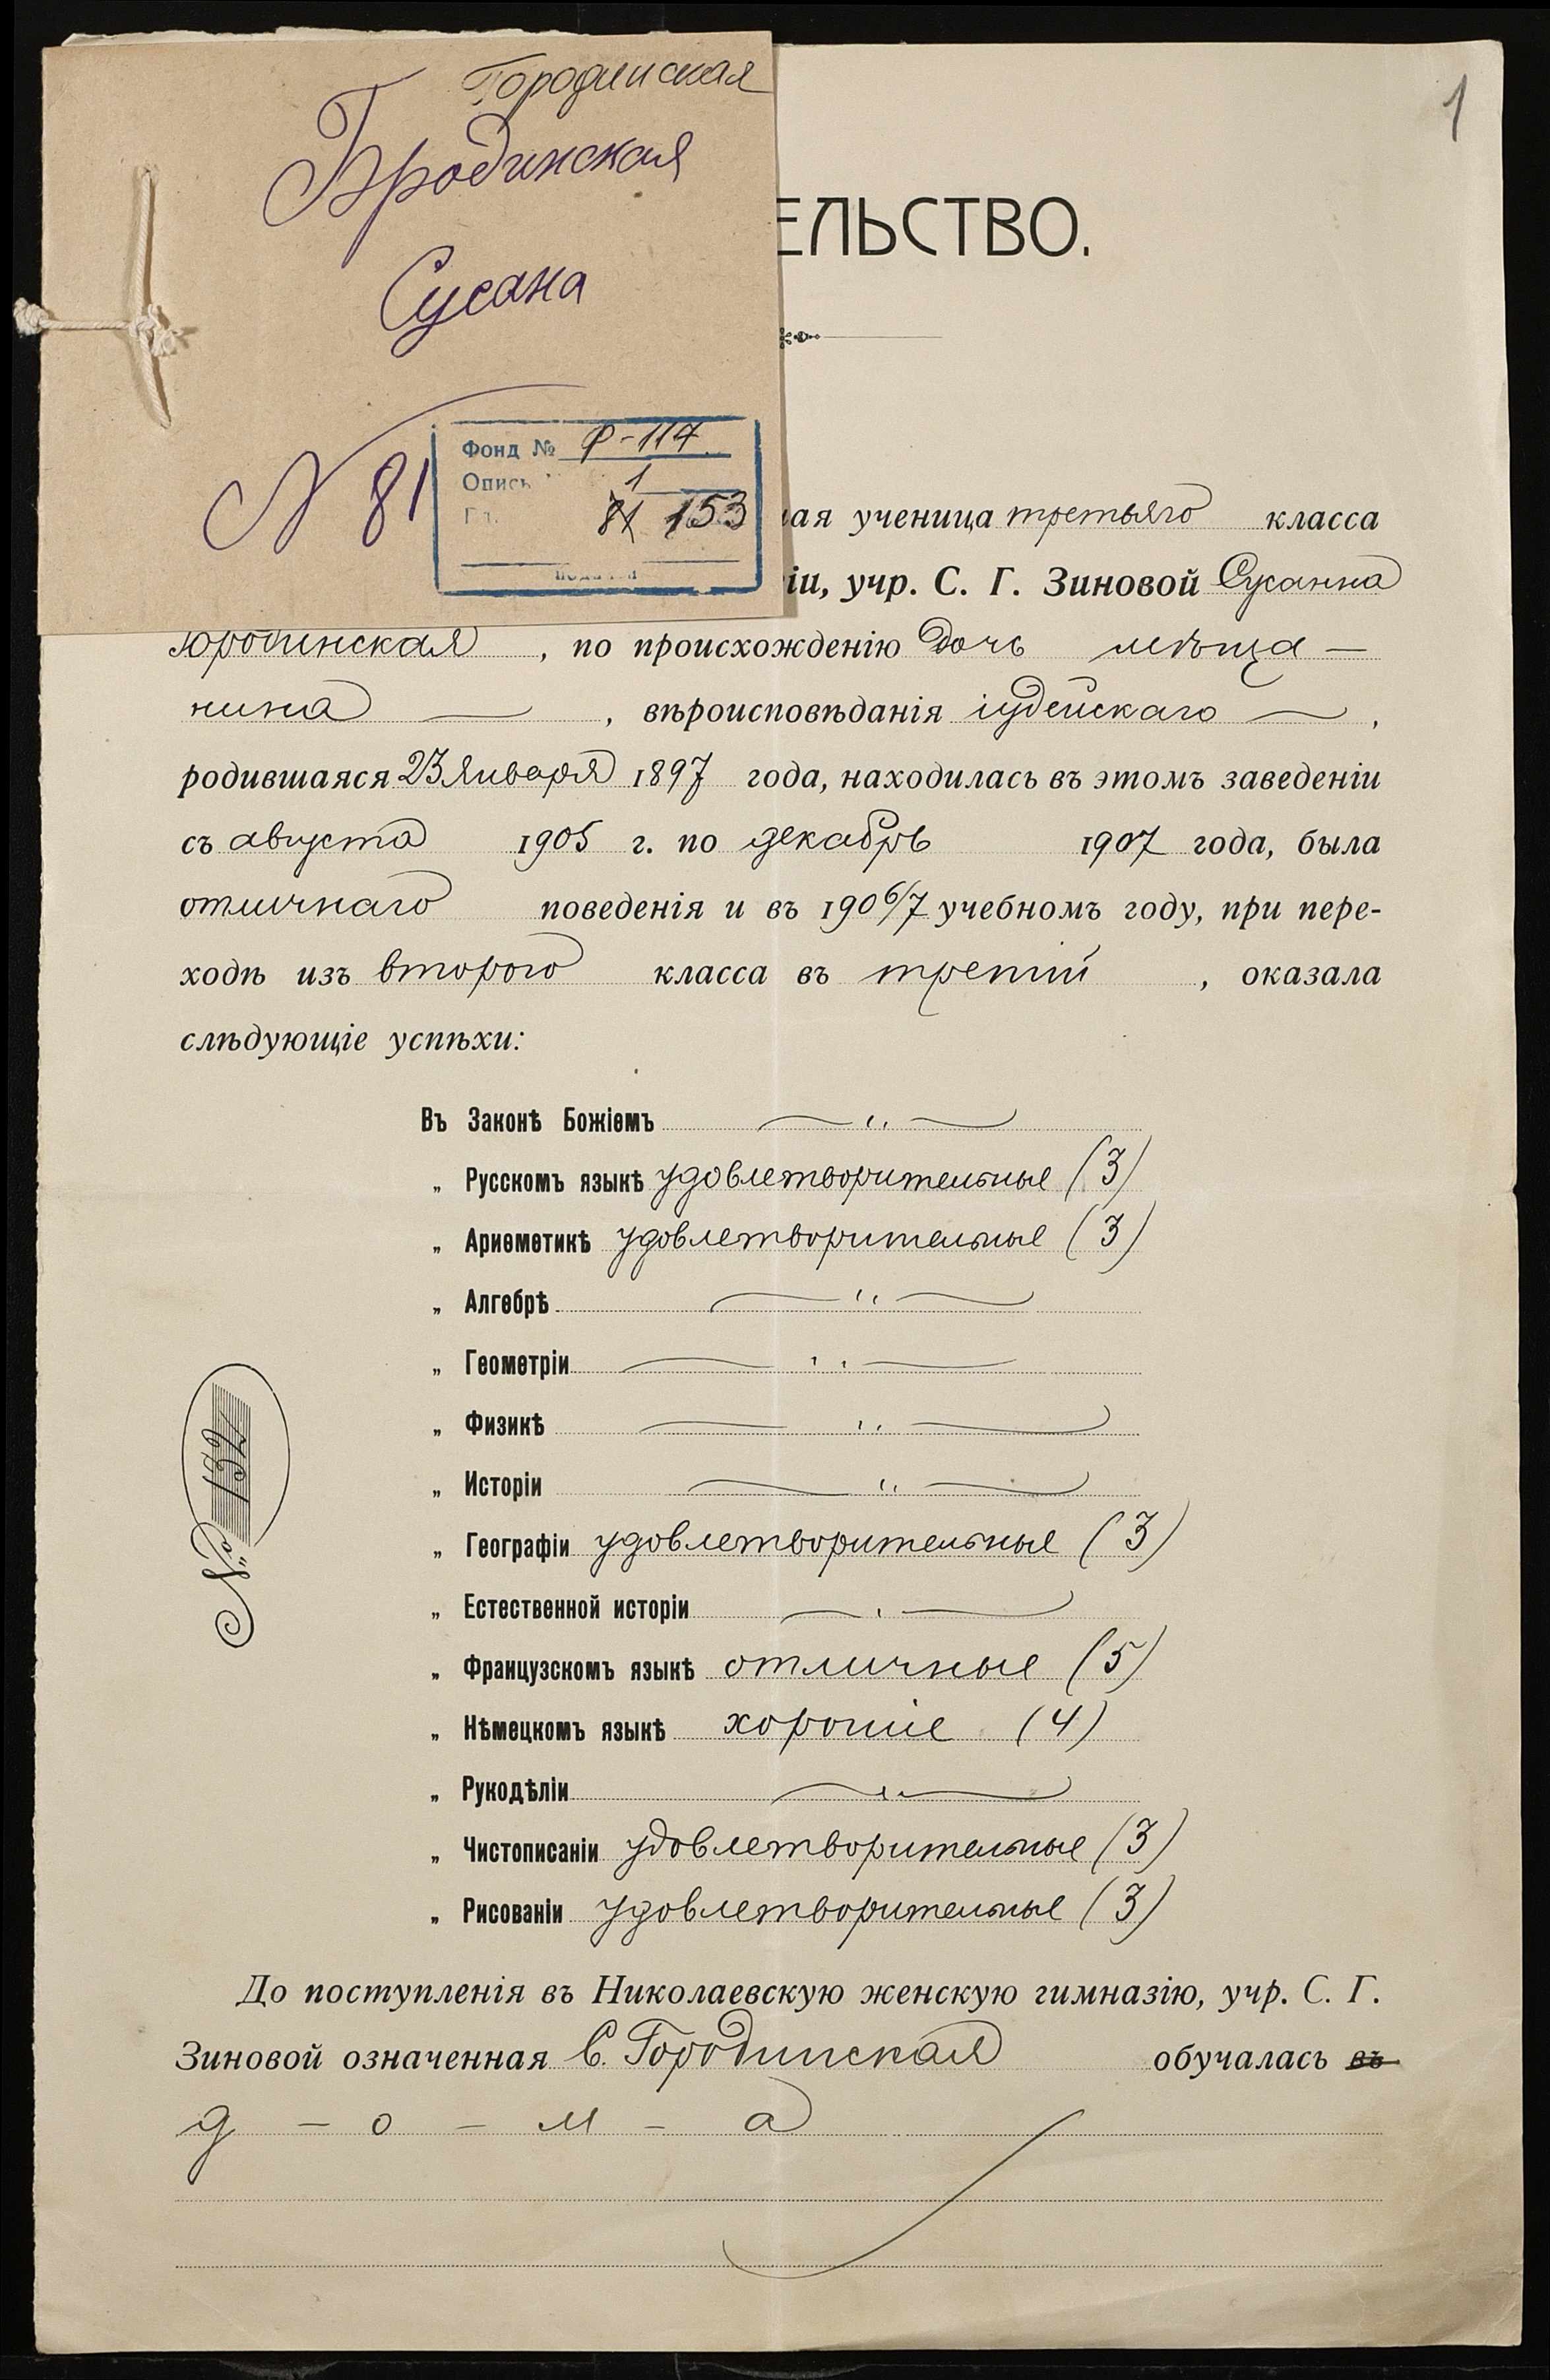 Городинская
Бродинская
Сусана
N 81
Фонд № Ф-117
Опись 1
81 153
1
ЕЛЬСТВО.
ая ученица третьяго класса
іи, учр. С. Г. Зиновой Сусанна
Городинская, по происхожденію дочь мѣща-
нина —, вѣроисповѣданія іудейскаго —,
родившаяся 23 Января 1897 года, находилась въ этомъ заведеніи
съ августа 1905 г. по декабрь 1907 года, была
отличнаго поведенія и въ 1906/7 учебномъ году, при пере-
ходѣ изъ второго класса въ третій, оказала
слѣдующіе успѣхи:
Въ Законѣ Божіемъ — „ —
„ Русскомъ языкѣ удовлетворительные (3)
„ Ариѳметикѣ удовлетворительные (3)
„ Алгебрѣ — „ —
„ Геометріи — „ —
„ Физикѣ — „ —
„ Исторіи — „ —
„ Географіи удовлетворительные (3)
„ Естественной исторіи — „ —
„ Французскомъ языкѣ отличные (5)
„ Нѣмецкомъ языкѣ хорошіе (4)
„ Рукодѣліи — „ —
„ Чистописаніи удовлетворительные (3)
„ Рисованіи удовлетворительные (3)
№ 152
До поступленія въ Николаевскую женскую гимназію, учр. С. Г.
Зиновой означенная С. Городинская обучалась въ
д - о - м - а